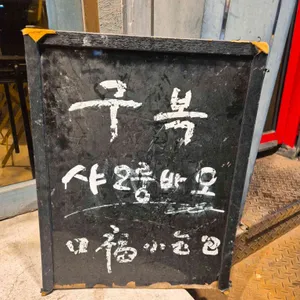 구복
샤오룽바오
口福小包